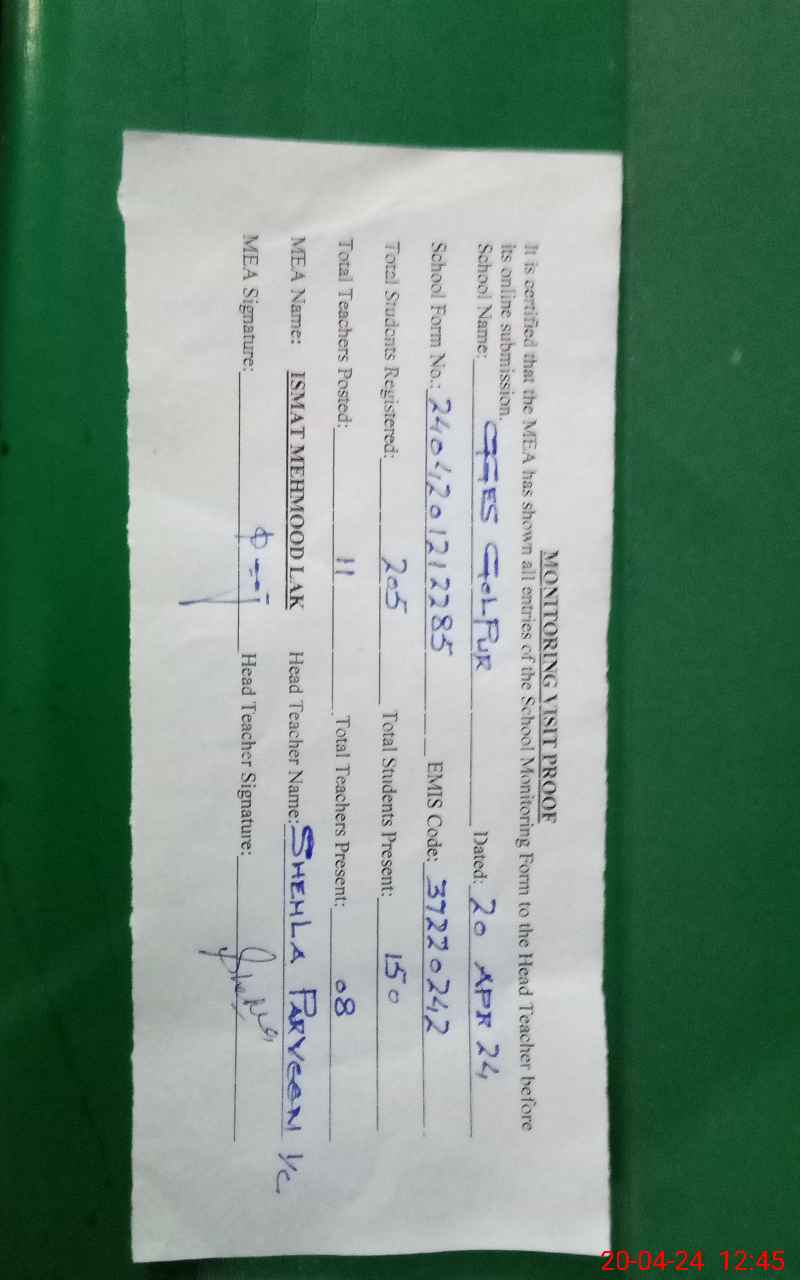 MONITORING VISIT PROOF
It is certified that the MEA has shown all entries of the School Monitoring Form to the Head Teacher before
its online submission.
School Name: GGES GOLPUR Dated: 20 APR 24
School Form No.: 2404201212285 EMIS Code: 37220242
Total Students Registered: 205 Total Students Present: 150
Total Teachers Posted: 11 Total Teachers Present: 08
MEA Name: ISMAT MEHMOOD LAK Head Teacher Name: SHEHLA PARVEEN I/C
MEA Signature: Head Teacher Signature:
20-04-24 12:45